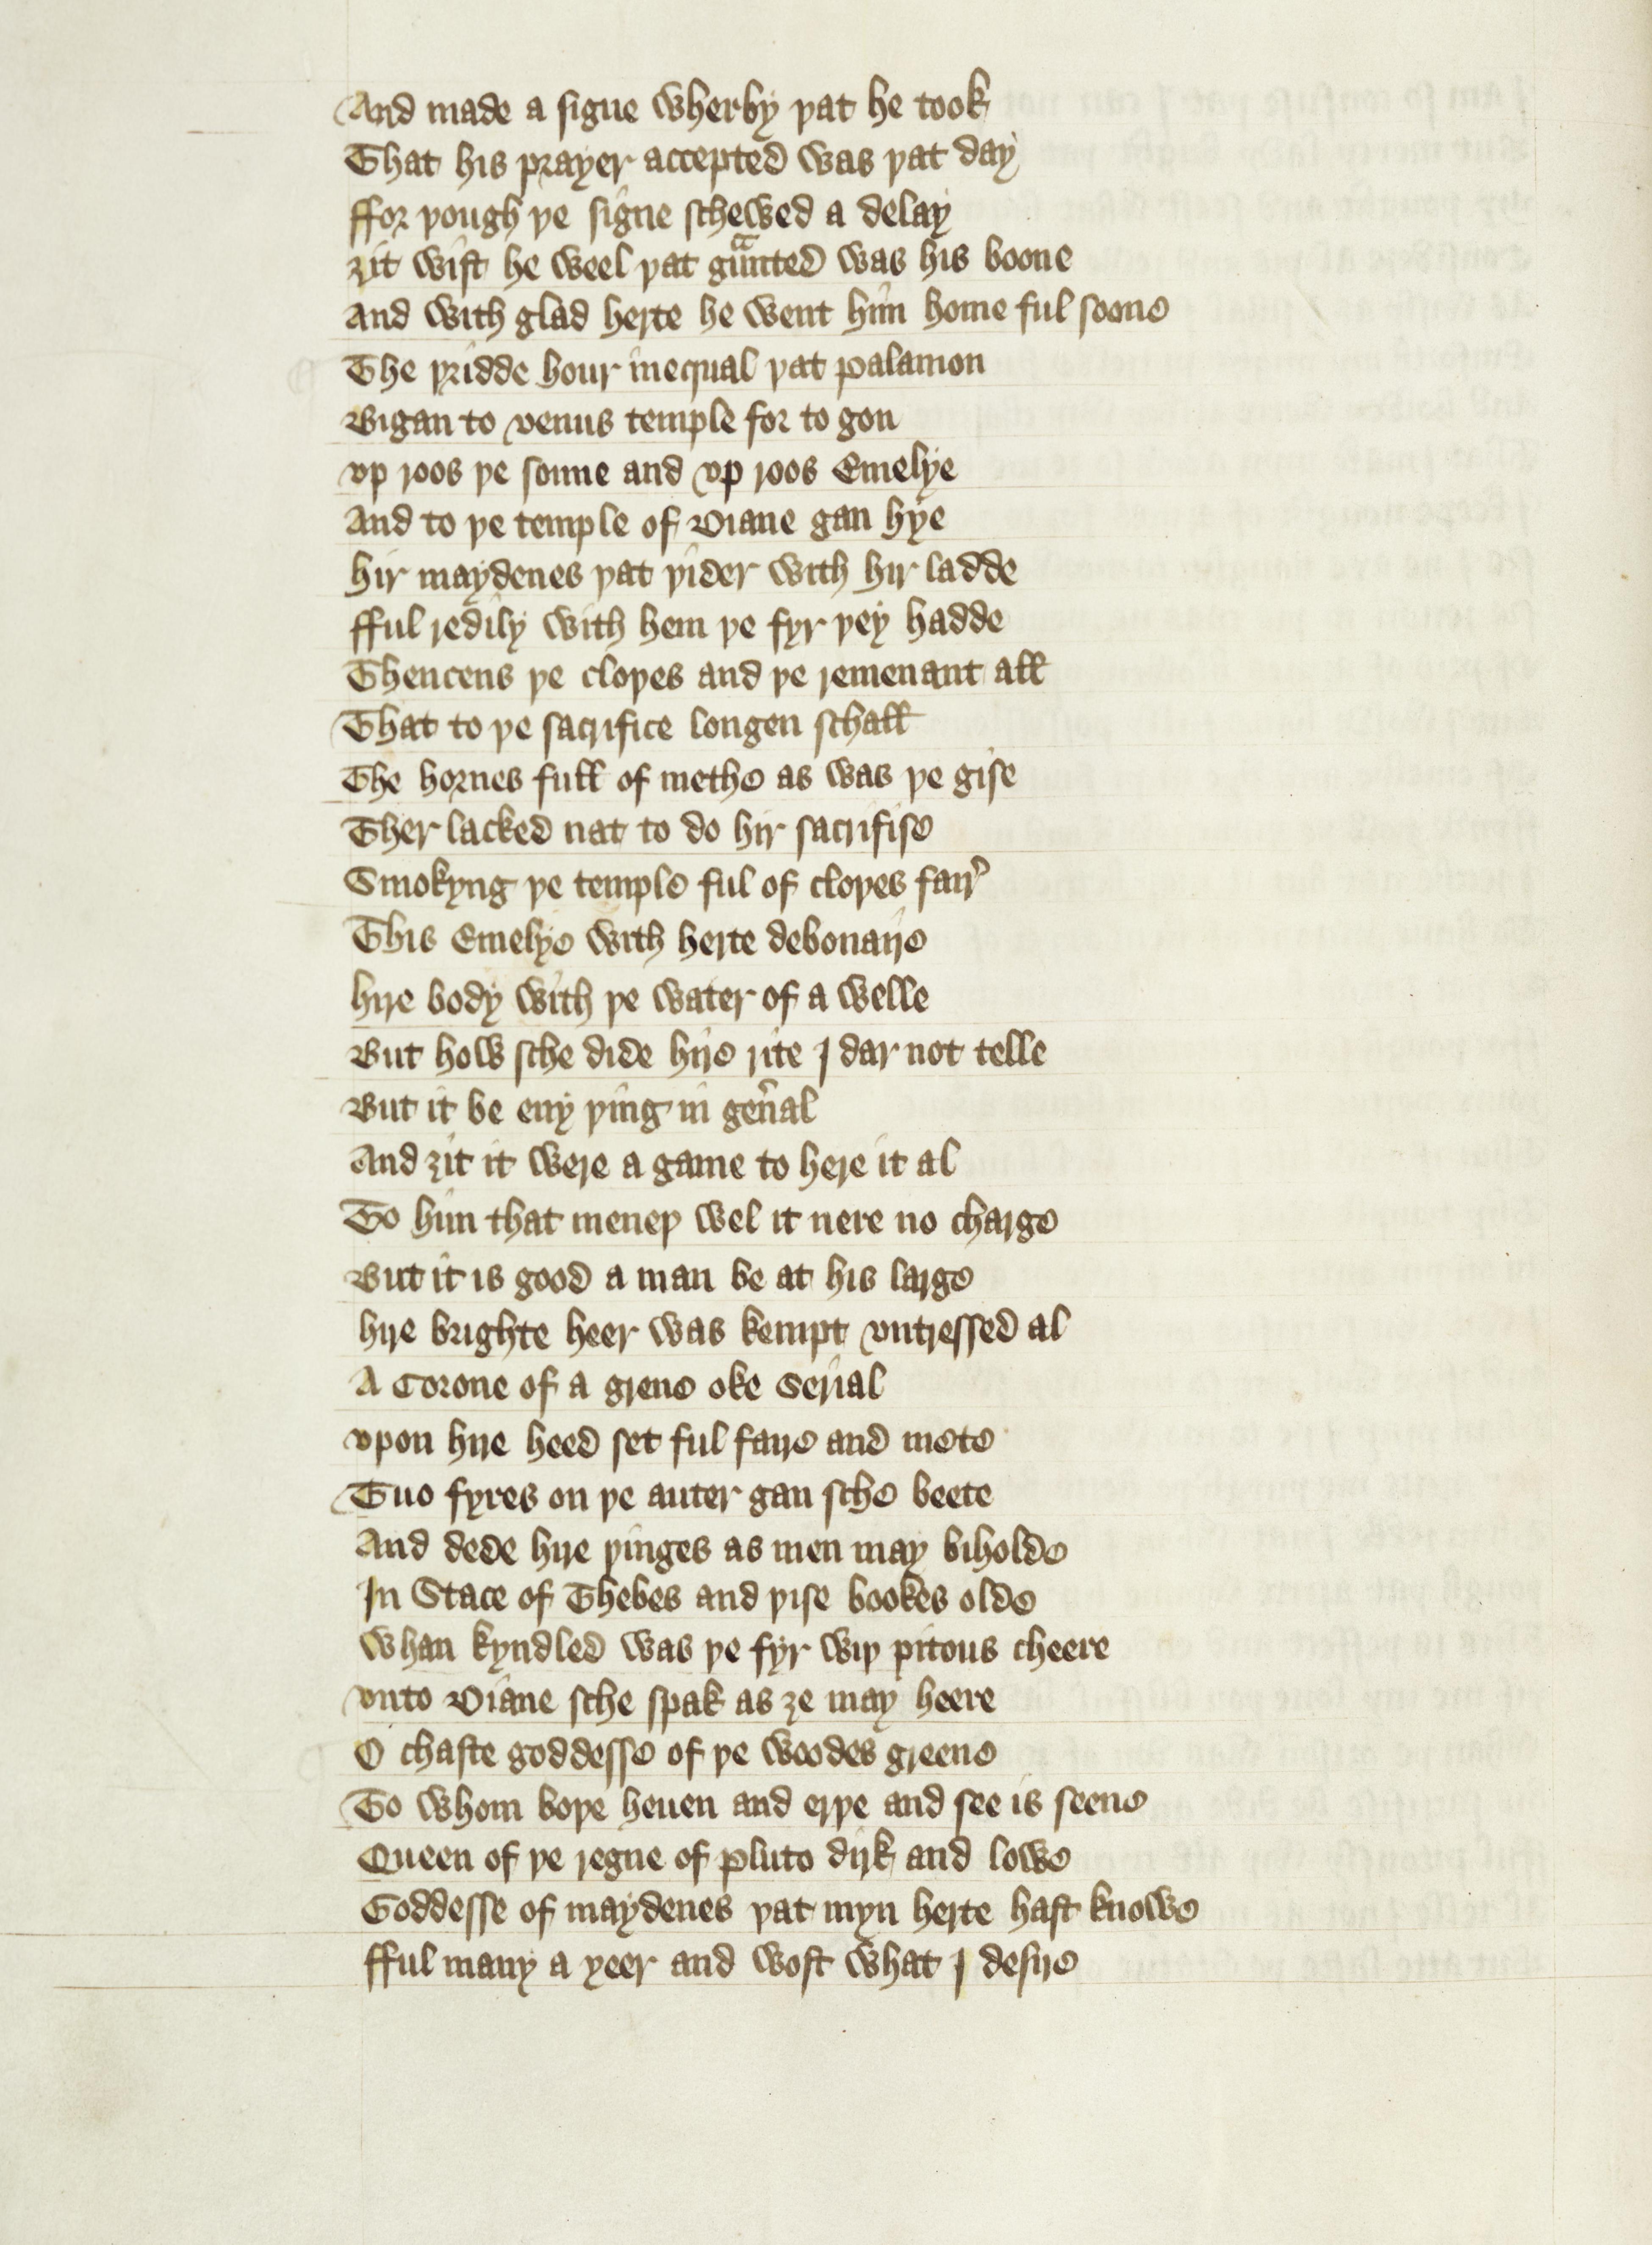 And made a signe wherby þat he took
That his prayer accepted was þat day
ffor þough þe signe schewed a delay
ȝit wist he weel þat gᵃunted was his boone
And with glad herte he went him home ful soone
The þridde hour inequal þat palamon
Bigan to venus temple for to gon
vp roos þe sonne and vp roos Emelye
And to þe temple of Diane gan hye
hir maydenes þat þider with hir ladde
fful redily with hem þe fyr þey hadde
Thencens þe cloþes and þe remenant all
That to þe sacrifice longen schall
The hornes full of methe as was þe gise
Ther lacked nat to do hir sacrifise
Smokyng þe temple ful of cloþes fair̛
This Emelye with herte debonaire
hire body with þe water of a welle
But how sche dide hire rite I dar not telle
But it be eny þing in gen̛al
And ȝit it were a game to here it al
To him that meneþ wel it nere no charge
But it is good a man be at his large
hire brighte heer was kempt vntressed al
A Corone of a grene oke Serial
vpon hire heed set ful faire and mete
Tuo fyres on þe auter gan sche beete
And dede hire þinges as men may biholde
In Stace of Thebes and þise bookes olde
Whan kyndled was þe fyr wiþ pitous cheere
vnto Diane sche spak as ȝe may heere
O chaste goddesse of þe woodes greene
To whom boþe heuen and erþe and see is seene
Queen of þe regne of pluto dirk and lowe
Goddesse of maydenes þat myn herte hast knowe
fful many a yeer and wost what I desire